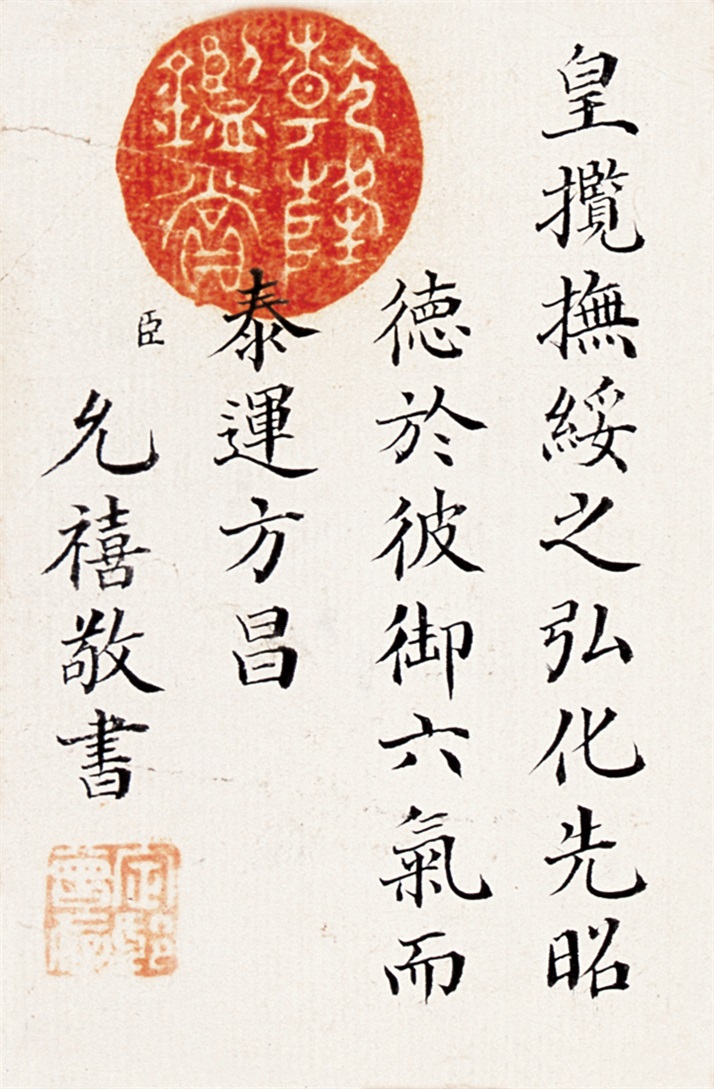 皇攬撫綏之弘化先昭
德於彼御六氣而
泰運方昌
臣允禧敬書
乾隆
鑑賞